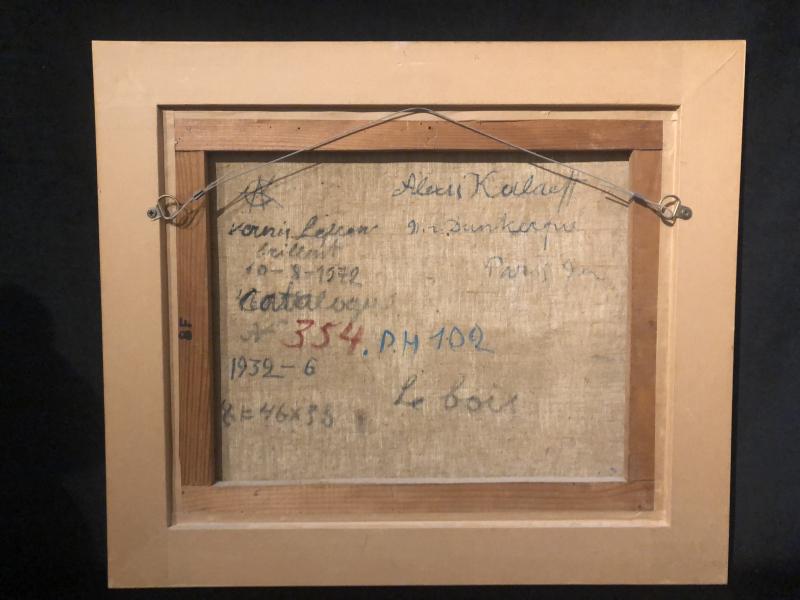 AK
Alexis Kalaeff
vernis Lefranc
brillant
10-8-1972
D. r. Dunkerque
Paris 9
Catalogue
N° 354. P.H 102
1932-6
8F=46X38
Le bois
8F